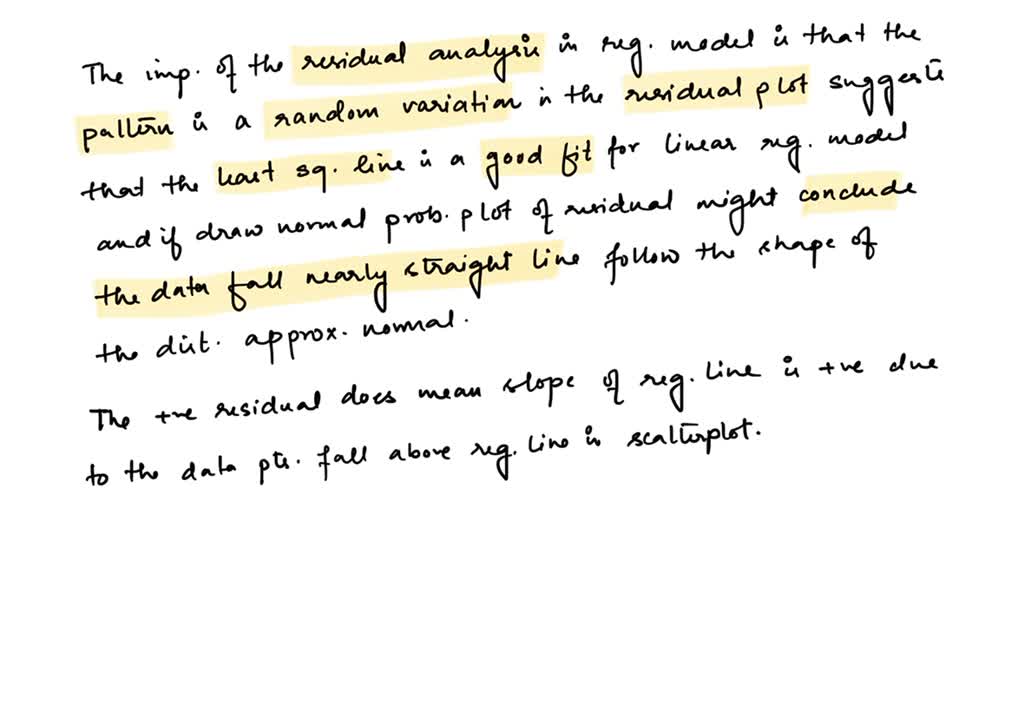 The imp. of the residual analysis in reg. model is that the
pattern is a random variation in the residual plot suggests
that the least sq. line is a good fit for linear reg. model
and if draw normal prob. plot of residual might conclude
the data fall nearly straight line follow the shape of
the dist. approx. normal.
The +ve residual does mean slope of reg. line is +ve due
to the data pts. fall above reg. line in scatterplot.